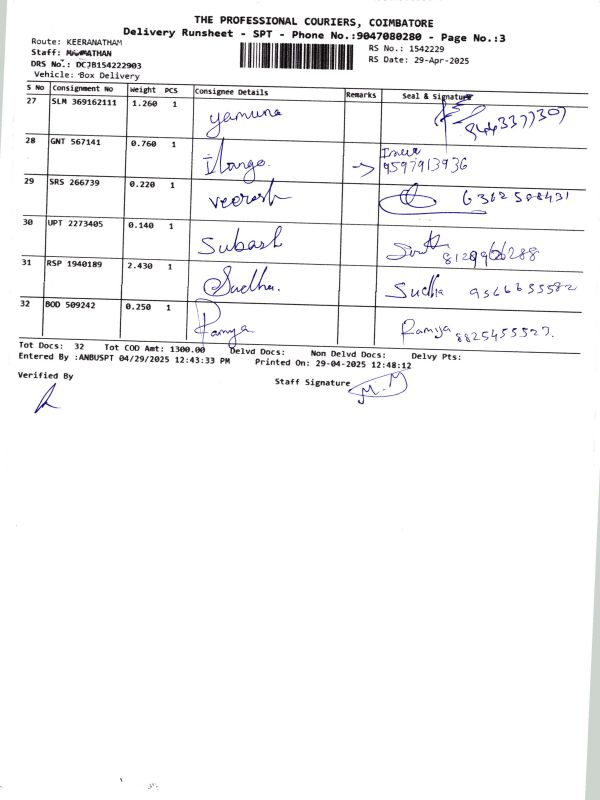 THE PROFESSIONAL COURIERS, COIMBATORE
Delivery Runsheet - SPT - Phone No.:9047080280 - Page No.:3
Route: KEERANATHAM
RS No.: 1542229
Staff: MATHAN
RS Date: 29-Apr-2025
DRS No.: DCJB154222903
Vehicle: Box Delivery
S No Consignment No Weight PCS Consignee Details Remarks Seal & Signature
27 SLM 369162111 1.260 1 yamuna
28 GNT 567141 0.760 1 Ilango. 9597913936
29 SRS 266739 0.220 1 Veeresh
30 UPT 2273405 0.140 1 Subash
31 RSP 1940189 2.430 1 Sudha. Sudha
32 BOD 509242 0.250 1 Ramya Ramya 8825455527.
Tot Docs: 32 Tot COD Amt: 1300.00 Delvd Docs: Non Delvd Docs: Delvy Pts:
Entered By :ANBUSPT 04/29/2025 12:43:33 PM Printed On: 29-04-2025 12:48:12
Verified By
Staff Signature M.M